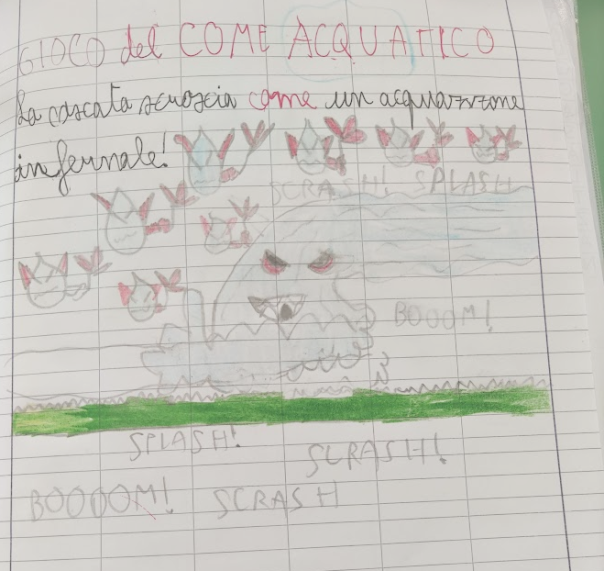 GIOCO del COME ACQUATICO
La cascata scroscia come un acquazzone
infernale!
SCRASH! SPLASH
BOOOM!
SPLASH!
SCRASH!
BOOOOM! SCRASH